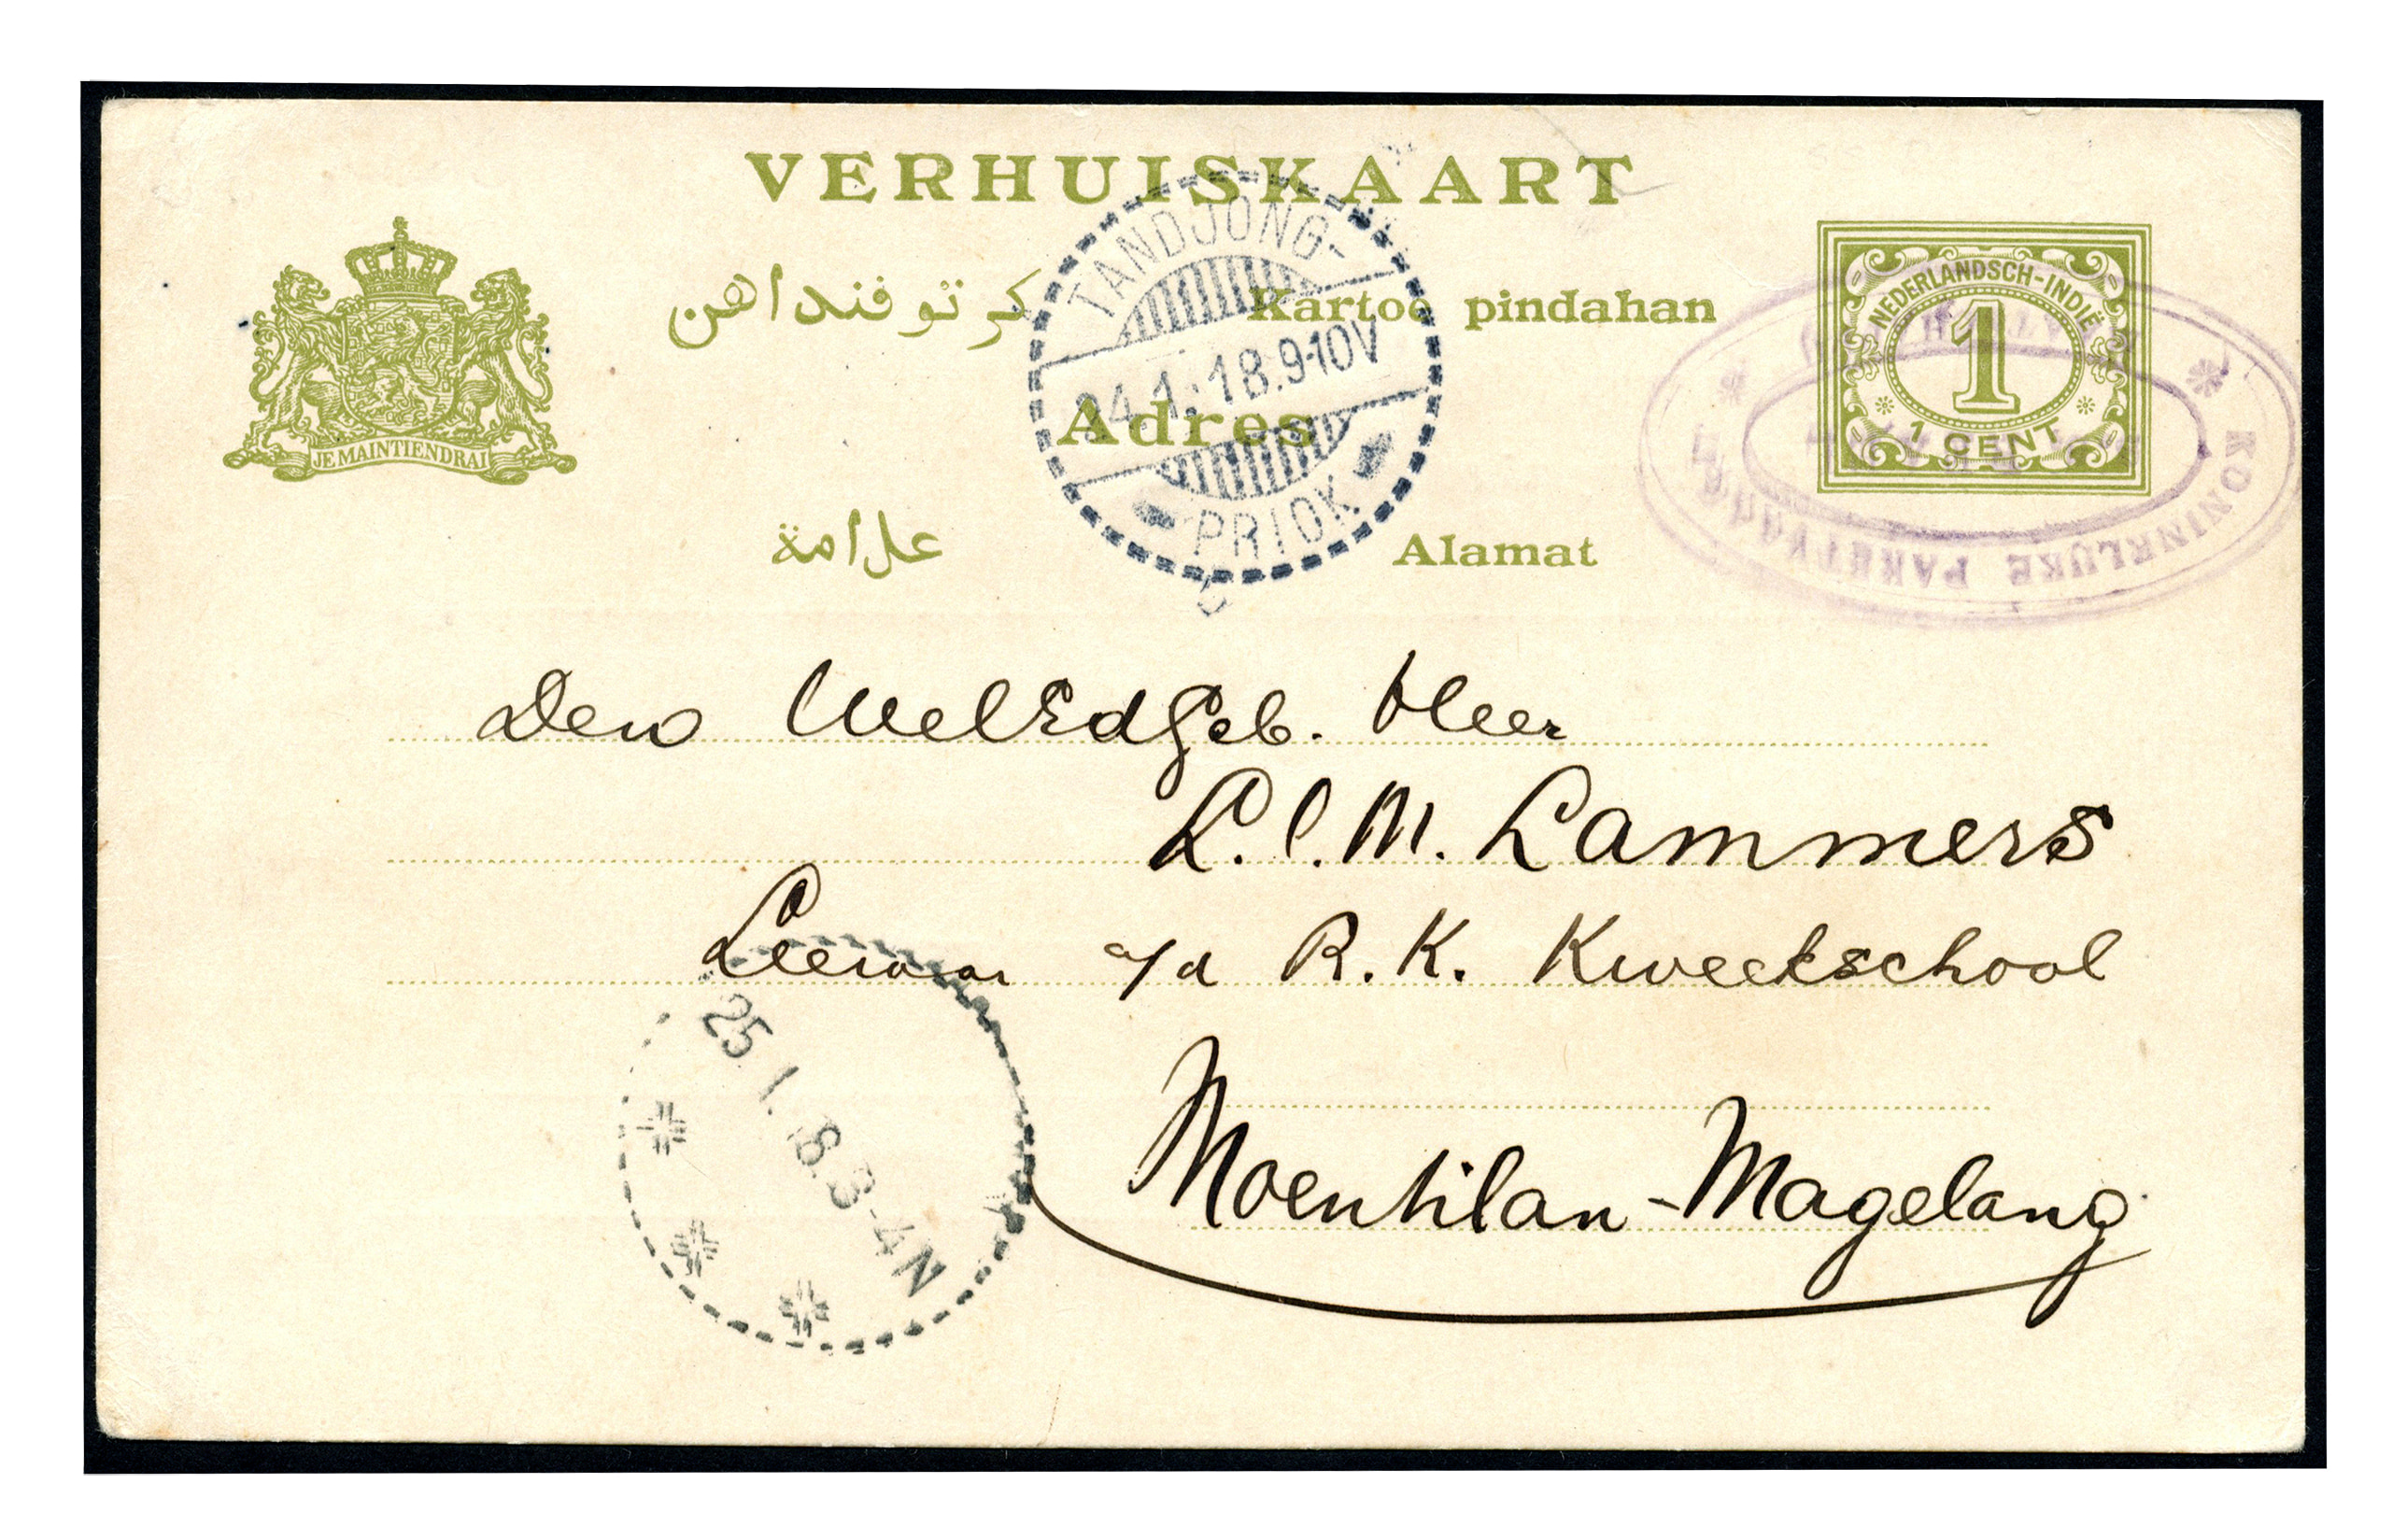 VERHUISKAART
كرتو فنداهن Kartoe pindahan
Adres
علامة Alamat
JE MAINTIENDRAI
NEDERLANDSCH-INDIË
1
1 CENT
TANDJONG-
24.1.18.9-10V
PRIOK
KONINKLIJKE PAKETVAART
Den WelEdGeb. Heer
L.C.M. Lammers
Leeraar a/d R.K. Kweekschool
Moentilan-Magelang
25.1.18.3-4N